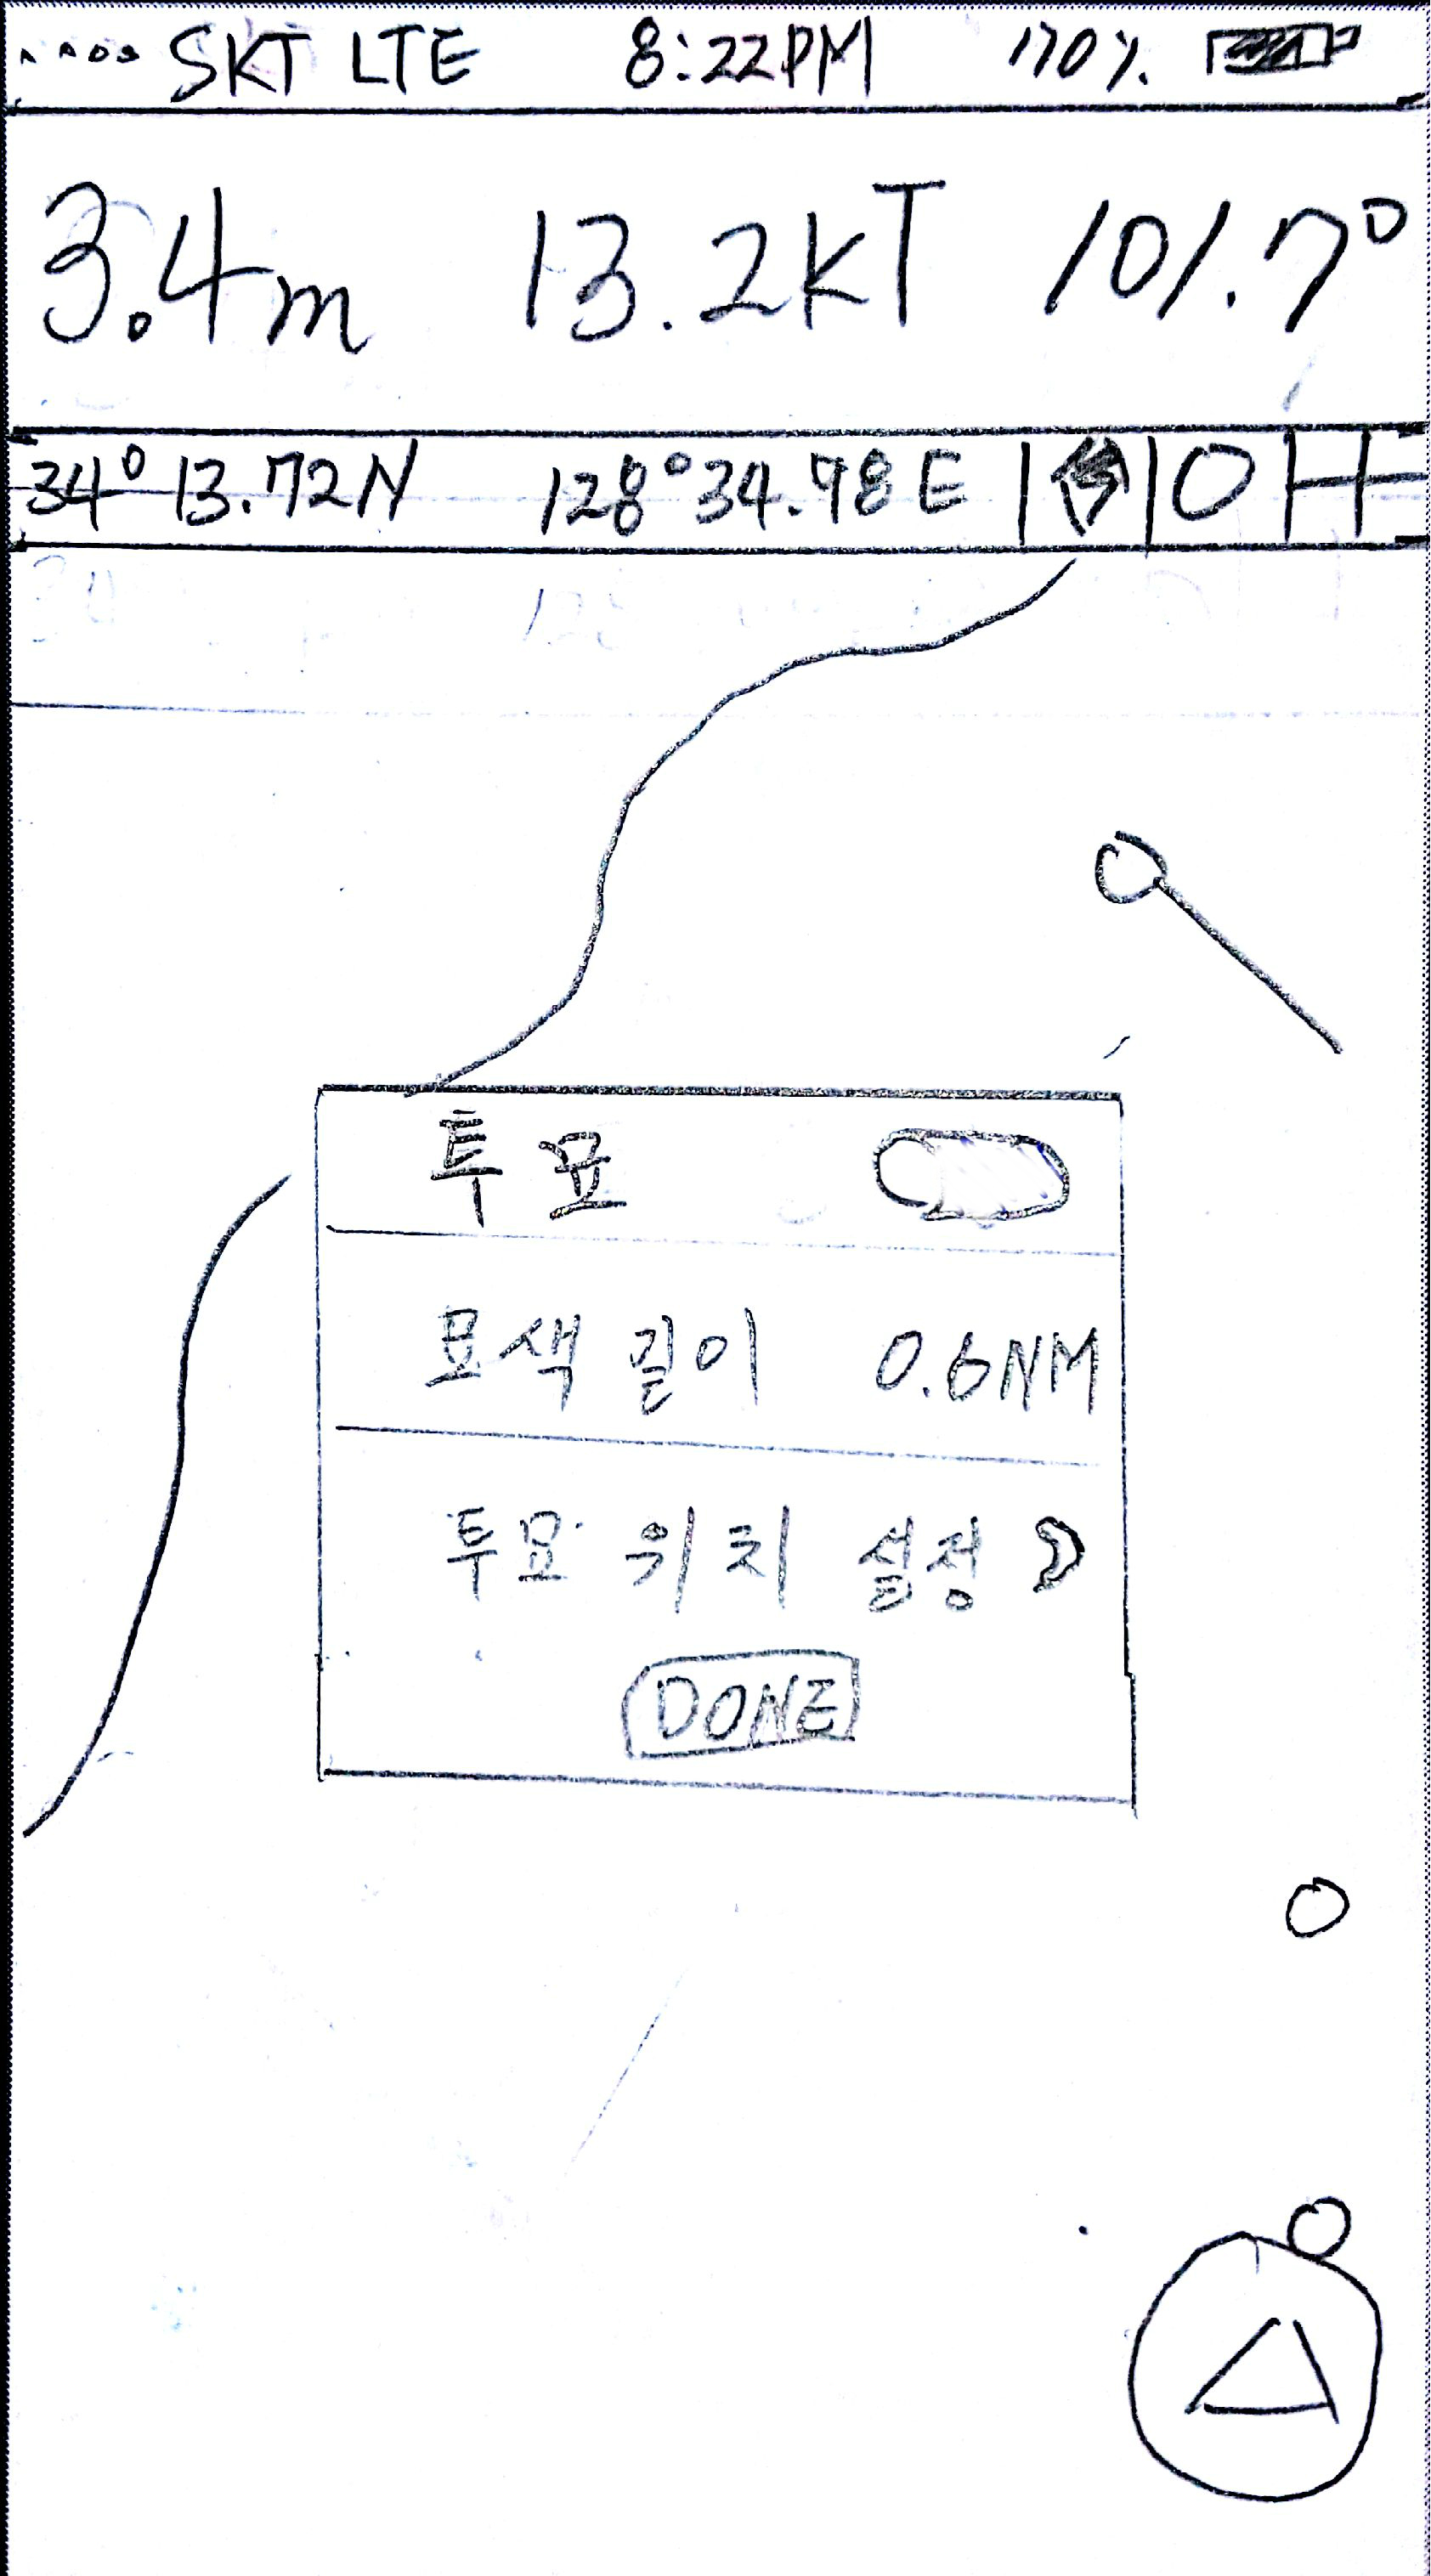 SKT LTE 8:22PM 70%
3.4m 13.2kT 101.7°
34° 13.72N 128° 34.78E
투묘
묘색 길이 0.6NM
투묘 위치 설정
DONE